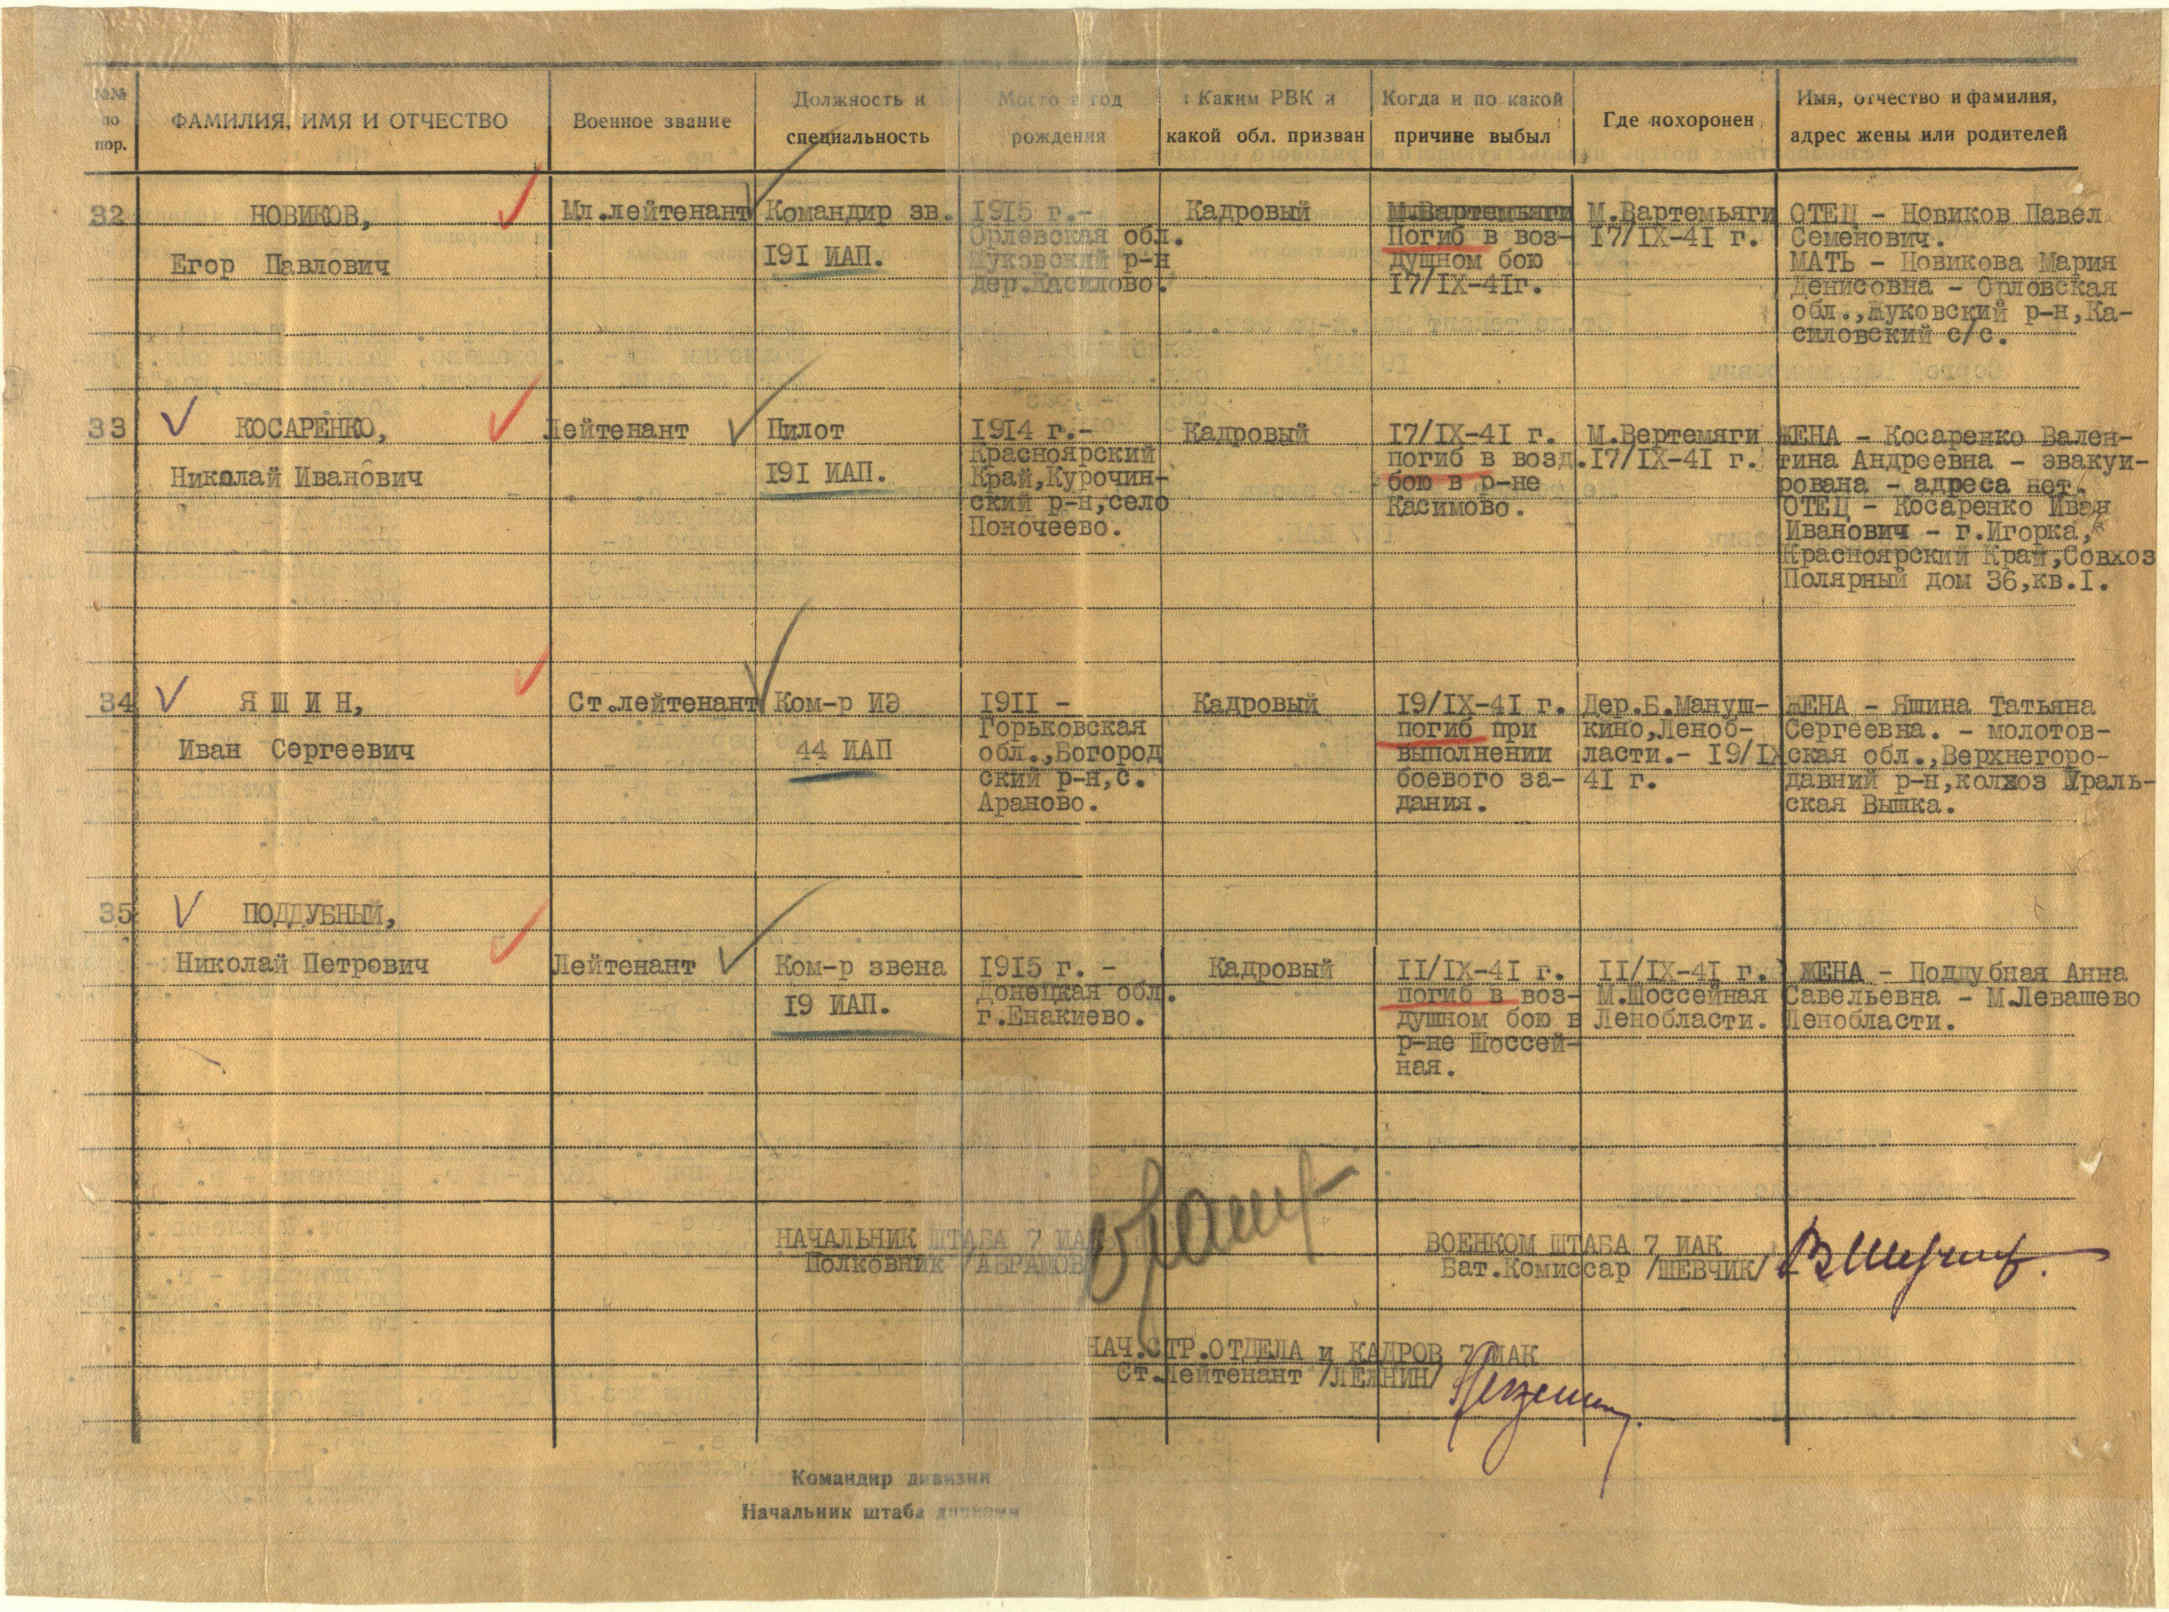 №№ по пор.
ФАМИЛИЯ, ИМЯ И ОТЧЕСТВО
Военное звание
Должность и
специальность
Место и год
рождения
Каким РВК и
какой обл. призван
Когда и по какой
причине выбыл
Где похоронен
Имя, отчество и фамилия,
адрес жены или родителей
32
НОВИКОВ,
Егор Павлович
Мл.лейтенант
Командир зв.
191 ИАП.
1915 г.-
Орлевская обл.
Жуковский р-н
дер.Касилово.
Кадровый
М.Вартемьяги
Погиб в воз-
душном бою
17/IX-41г.
М.Вартемьяги
17/IX-41 г.
ОТЕЦ - Новиков Павел
Семенович.
МАТЬ - Новикова Мария
Денисовна - Орловская
обл.,Жуковский р-н,Ка-
силовский с/с.
33
КОСАРЕНКО,
Николай Иванович
Лейтенант
Пилот
191 ИАП.
1914 г.-
Красноярский
Край,Курочин-
ский р-н,село
Поночеево.
Кадровый
17/IX-41 г.
погиб в возд.
бою в р-не
Касимово.
М.Вертемяги
17/IX-41 г.
ЖЕНА - Косаренко Вален-
тина Андреевна - эвакуи-
рована - адреса нет.
ОТЕЦ - Косаренко Иван
Иванович - г.Игорка,
Красноярский Край,Совхоз
Полярный дом 36,кв.1.
34
ЯШИН,
Иван Сергеевич
Ст.лейтенант
Ком-р ИЭ
44 ИАП
1911 -
Горьковская
обл.,Богород
ский р-н,с.
Араново.
Кадровый
19/IX-41 г.
погиб при
выполнении
боевого за-
дания.
Дер.Б.Мануш-
кино,Леноб-
ласти.- 19/IX
41 г.
ЖЕНА - Яшина Татьяна
Сергеевна. - молотов-
ская обл.,Верхнегоро-
давний р-н,колхоз Ураль-
ская Вышка.
35
ПОДДУБНЫЙ,
Николай Петрович
Лейтенант
Ком-р звена
19 ИАП.
1915 г. -
Донецкая обл.
г.Енакиево.
Кадровый
11/IX-41 г.
погиб в воз-
душном бою в
р-не Шоссей-
ная.
11/IX-41 г.
М.Шоссейная
Ленобласти.
ЖЕНА - Поддубная Анна
Савельевна - М.Левашево
Ленобласти.
НАЧАЛЬНИК ШТАБА 7 ИАК
Полковник /АБРАМОВ
ВОЕНКОМ ШТАБА 7 ИАК
Бат.Комиссар /ШЕВЧИК/
НАЧ.СТР.ОТДЕЛА и КАДРОВ 7 ИАК
Ст.Лейтенант /ЛЕЖНИН/
Командир дивизии
Начальник штаба дивизии